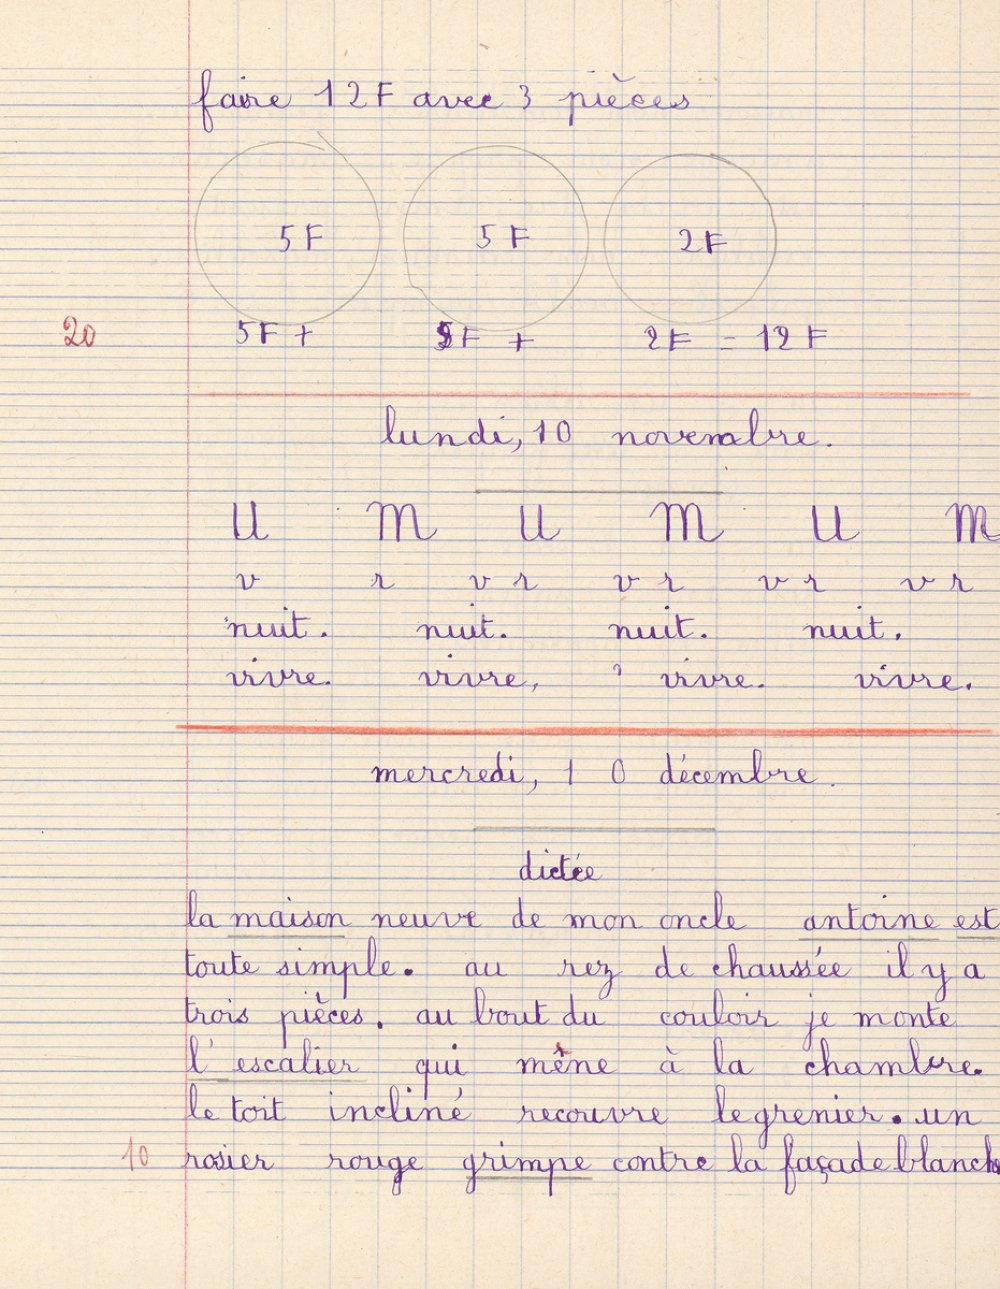 faire 12F avec 3 pièces
5F 5F 2F
20 5F + 5F + 2F = 12F
lundi, 10 novembre.
U M U M U M
v r v r v r v r v r
nuit. nuit. nuit. nuit.
vivre. vivre, vivre. vivre.
mercredi, 10 décembre.
dictée
la maison neuve de mon oncle antoine est
toute simple. au rez de chaussée il y a
trois pièces. au bout du couloir je monte
l'escalier qui mène à la chambre.
le toit incliné recouvre le grenier. un
10 rosier rouge grimpe contre la façade blanche